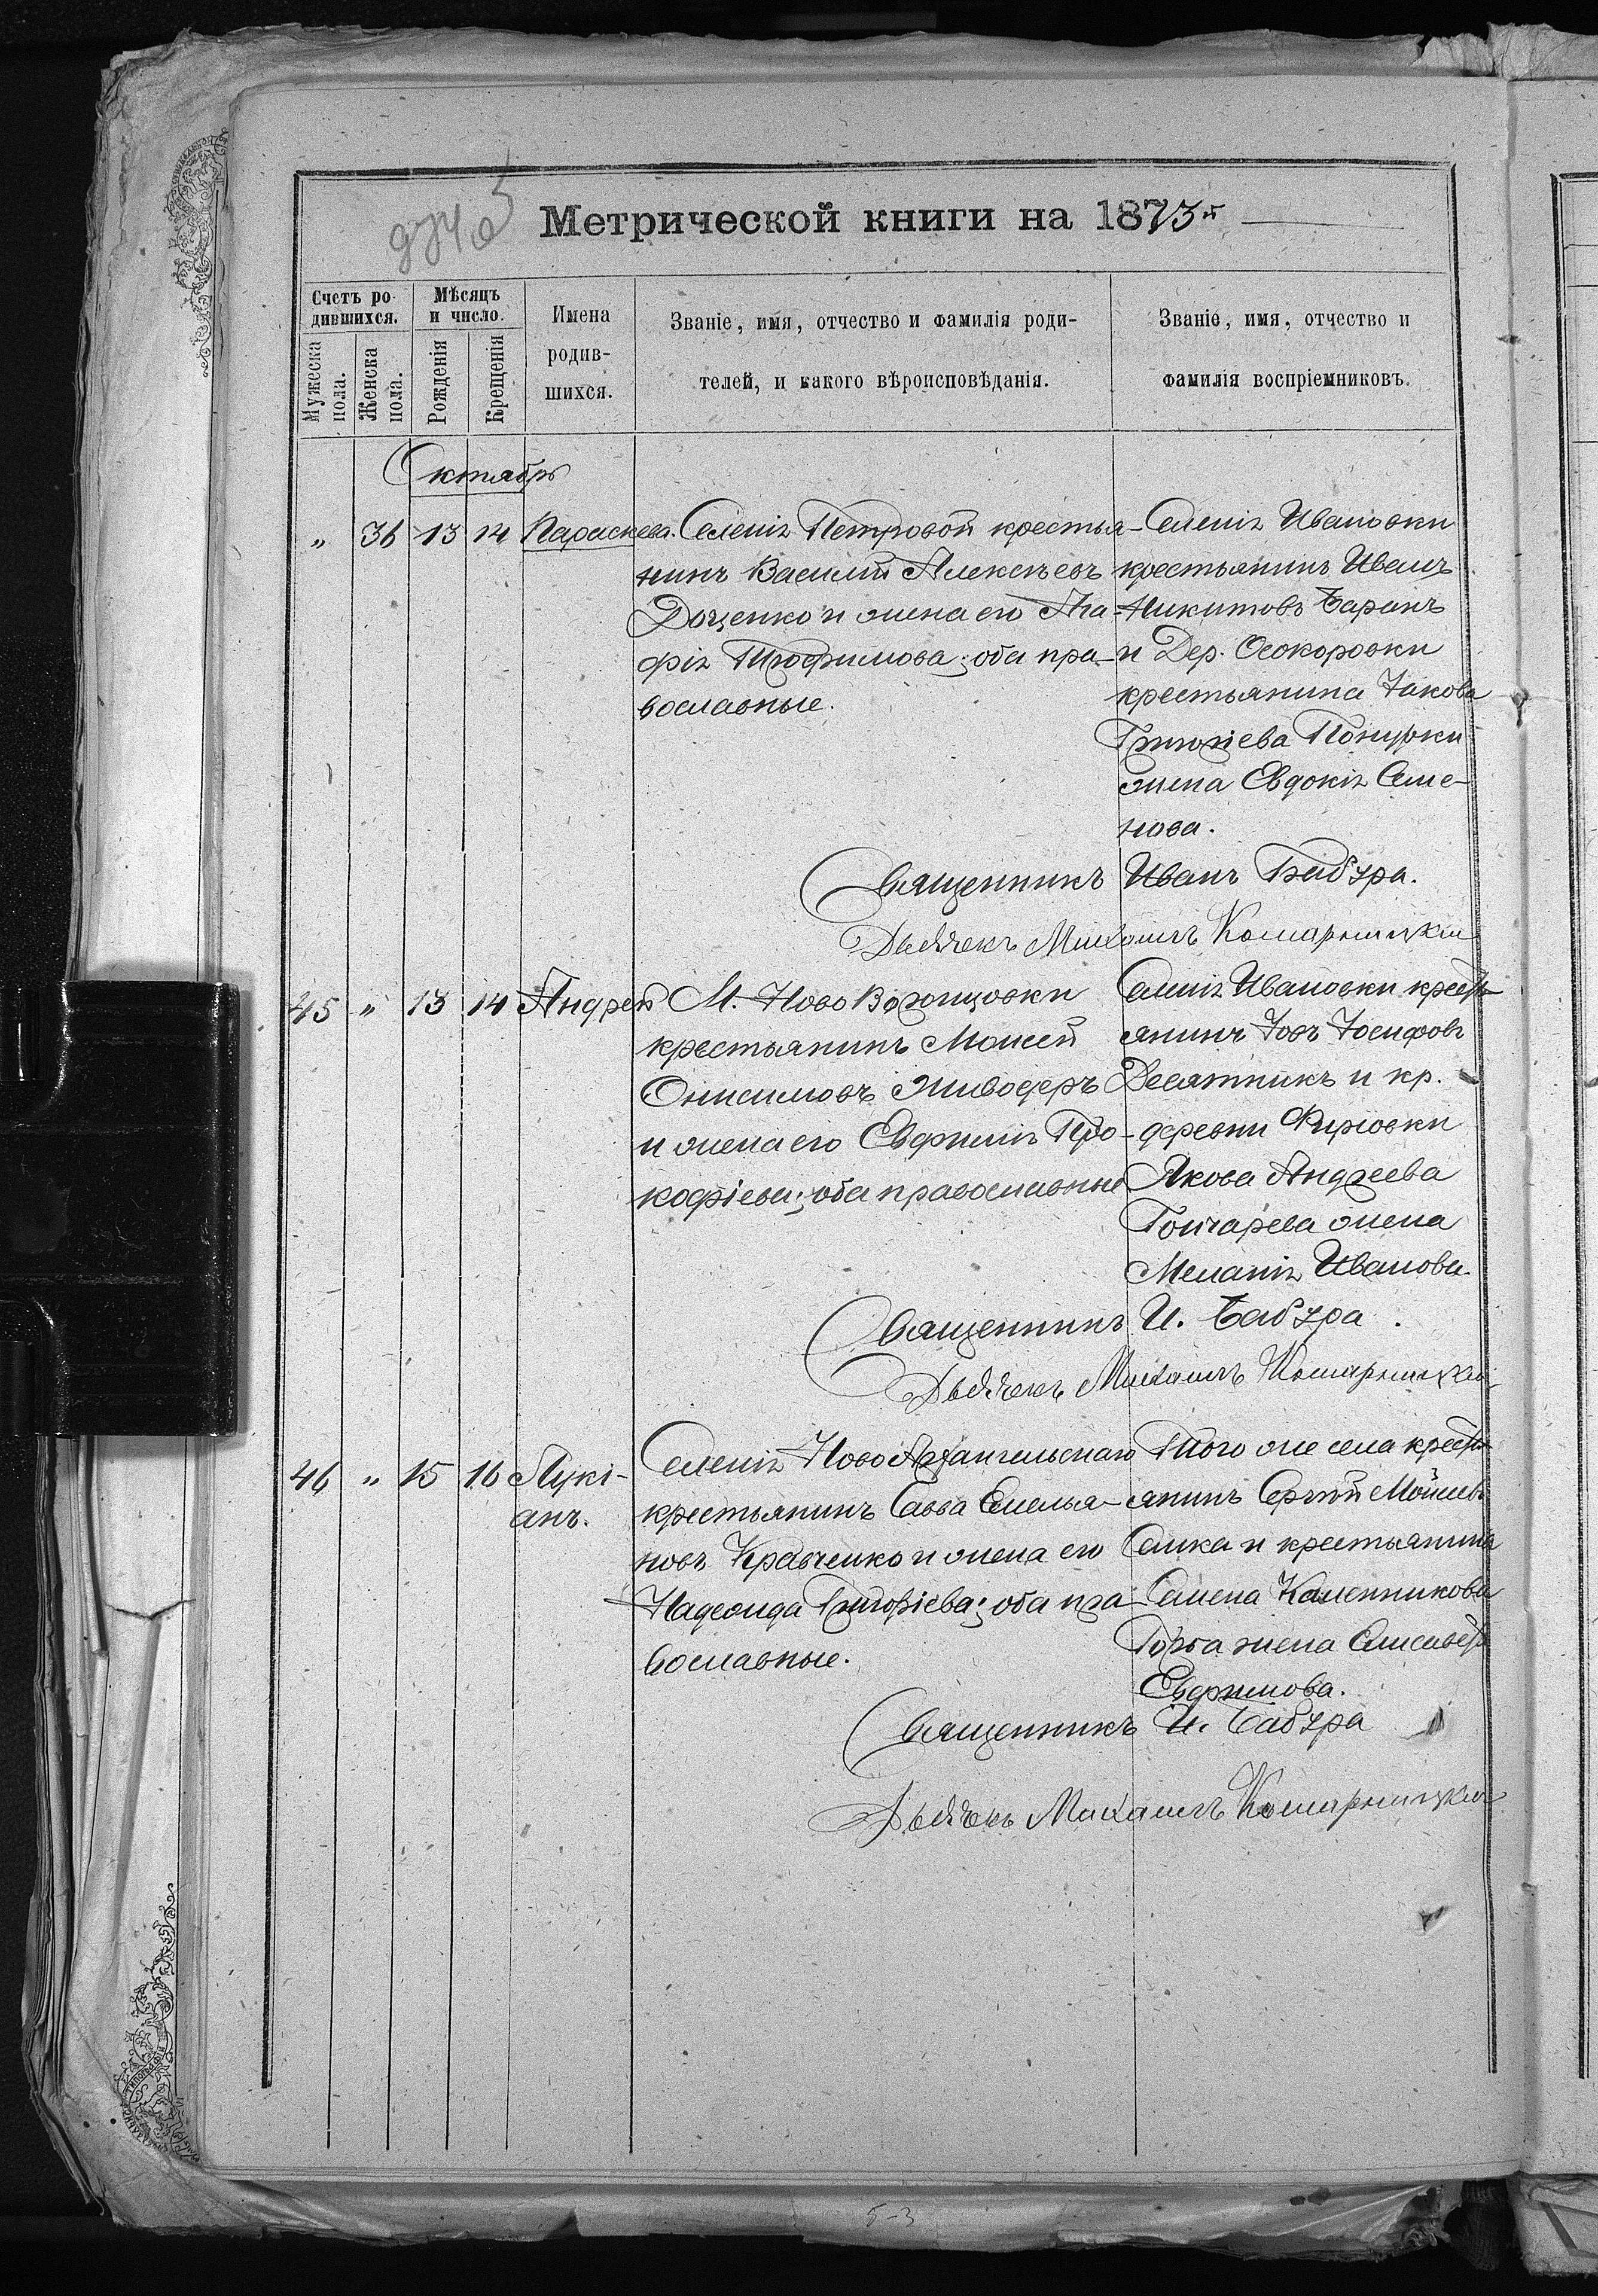 Метрической книги на 1873й
Счетъ ро-
дившихся.
Мѣсяцъ
и число.
Мужеска
пола.
Женска
пола.
Рожденія
Крещенія
Имена
родив-
шихся.
Званіе, имя, отчество и фамилія роди-
телей, и какого вѣроисповѣданія.
Званіе, имя, отчество и
фамилія воспріемниковъ.
Октябрь
" 36 13 14 Параскева.
Селенія Петровой крестья-
нинъ Василій Алексѣевъ
Доценко и жена его Ага-
фія Трофимова; оба пра-
вославные.
Селенія Ивановки
крестьянинъ Иванъ
Никитовъ Баранъ
и Дер. Осокоровки
крестьянина Іакова
Григоріева Понурки
жена Евдокія Семе-
нова.
Священникъ Иванъ Бабура.
Дьячекъ Михаилъ Комарницкій
45 " 13 14 Андрей
М. Ново Воронцовки
крестьянинъ Моисей
Онисимовъ Живодеръ
и жена его Евфимія Про-
кофіева; оба православные
Селенія Ивановки крест-
янинъ Іовъ Іосифовъ
Десятникъ и кр.
деревни Фирсовки
Якова Андреева
Гончарева жена
Меланія Иванова.
Священникъ И. Бабура.
Дьячекъ Михаилъ Комарницкій
46 " 15 16 Лукі-
анъ.
Селенія Ново Архангельскаго
крестьянинъ Савва Емелья-
новъ Кравченко и жена его
Надежда Григоріева; оба пра-
вославные.
Того же села крест-
янинъ Сергѣй Моисеевъ
и крестьянина
Семена Каленникова
жена Елисавета
Евфимова.
Священникъ И. Бабура
Дьячекъ Михаилъ Комарницкій
5-3